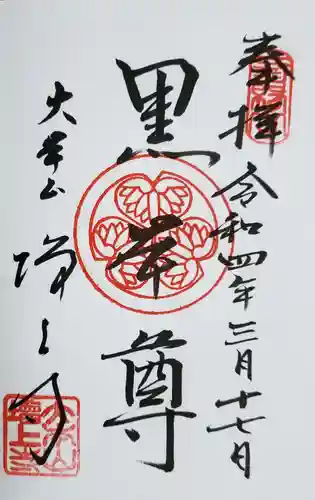 奉拝
令和四年三月十七日
黒本尊
大本山
増上寺